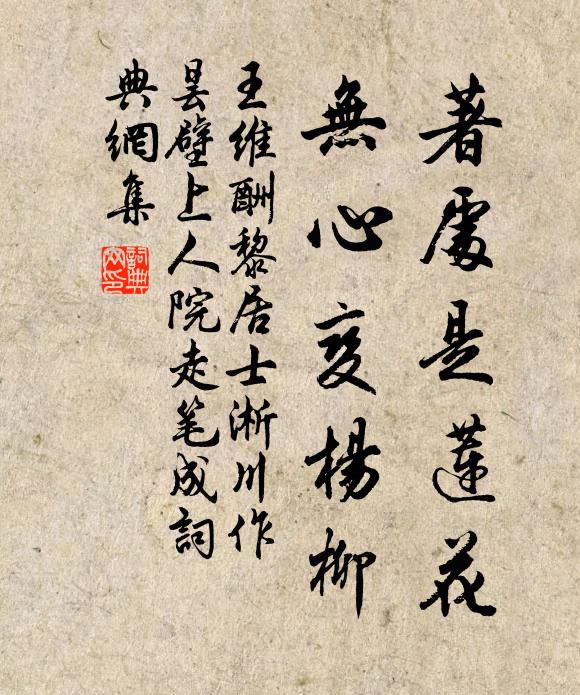 著處是蓮花
無心變楊柳
王維酬黎居士淅川作
曇壁上人院走笔成詞
典網集
詞典网印